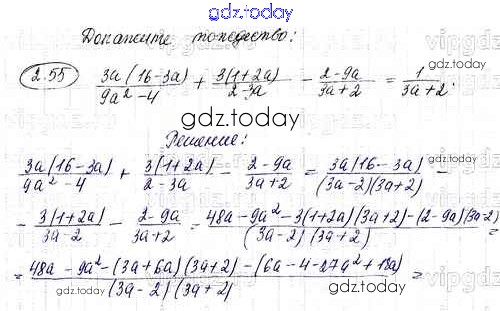 gdz.today
Докажите тождество:
2.55 3a(16-3a)/(9a² - 4) + 3(1+2a)/(2-3a) - (2-9a)/(3a+2) = 1/(3a+2);
gdz.today
Решение:
3a(16-3a)/(9a² - 4) + 3(1+2a)/(2-3a) - (2-9a)/(3a+2) = 3a(16-3a)/((3a-2)(3a+2)) -
- 3(1+2a)/(3a-2) - (2-9a)/(3a+2) = (48a - 9a² - 3(1+2a)(3a+2) - (2-9a)(3a-2))/((3a-2)(3a+2)) =
= (48a - 9a² - (3a+6a)(3a+2) - (6a-4-27a²+18a))/((3a-2)(3a+2)) =
gdz.today